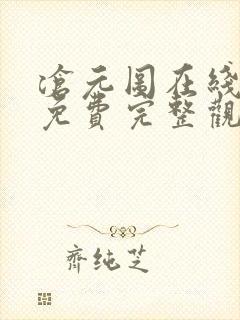 滄元图在綫
免費完整觀
齊纯芝